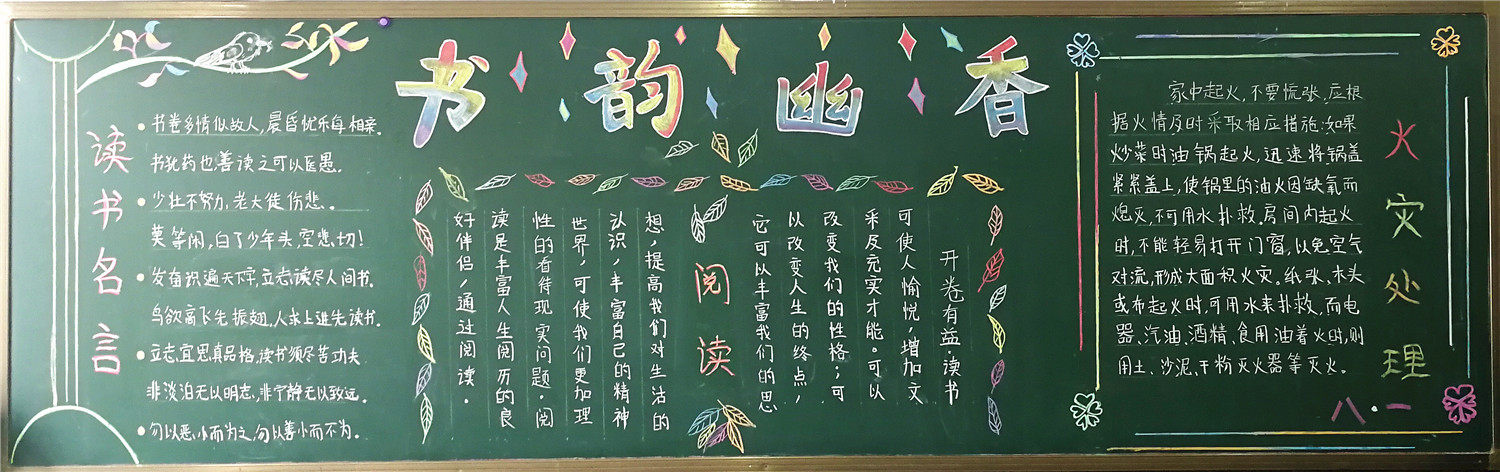 书韵幽香
读书名言
书卷多情似故人,晨昏忧乐每相亲.
书犹药也,善读之可以医愚.
少壮不努力,老大徒伤悲。
莫等闲,白了少年头,空悲切!
发奋识遍天下字,立志读尽人间书.
鸟欲高飞先振翅,人求上进先读书.
立志宜思真品格,读书须尽苦功夫
非淡泊无以明志,非宁静无以致远。
勿以恶小而为之,勿以善小而不为。
阅读
开卷有益·读书
可使人愉悦,增加文
采及充实才能。可以
改变我们的性格;可
以改变人生的终点,
它可以丰富我们的思
想,提高我们对生活的
认识,丰富自己的精神
世界,可使我们更加理
性的看待现实问题。阅
读是丰富人生阅历的良
好伴侣,通过阅读.
火灾处理
家中起火,不要慌张,应根
据火情及时采取相应措施:如果
炒菜时油锅起火,迅速将锅盖
紧紧盖上,使锅里的油火因缺氧而
熄灭,不可用水扑救,房间内起火
时,不能轻易打开门窗,以免空气
对流,形成大面积火灾。纸张、木头
或布起火时,可用水来扑救,而电
器、汽油、酒精、食用油着火时,则
用土、沙泥、干粉灭火器等灭火。
八·一